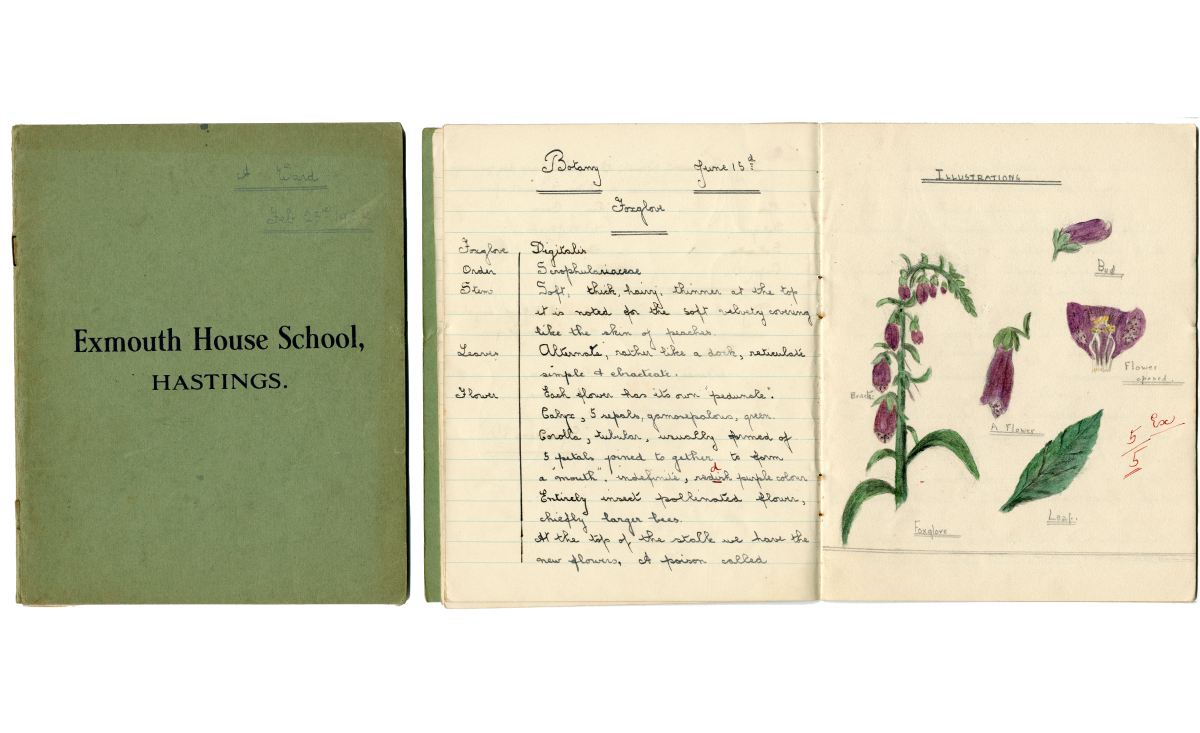 A Ward
Feb 23rd
Exmouth House School,
HASTINGS.
Botany June 15th
Foxglove
Foxglove Digitalis
Order Scrophulariaceae
Stem Soft, thick, hairy, thinner at the top
it is noted for the soft velvety covering
like the skin of peaches.
Leaves Alternate, rather like a dock, reticulate
simple & ebracteate.
Flower Each flower has its own "peduncle".
Calyx, 5 sepals, gamosepalous, green.
Corolla, tubular, usually formed of
5 petals joined to gether to form
a "mouth". indefinite, redish purple colour
d
Entirely insect pollinated flower,
chiefly larger bees.
At the top of the stalk we have the
new flowers, A poison called
ILLUSTRATIONS
Bud
Flower
opened.
Bract
A Flower
5 Ex
5
Leaf.
Foxglove